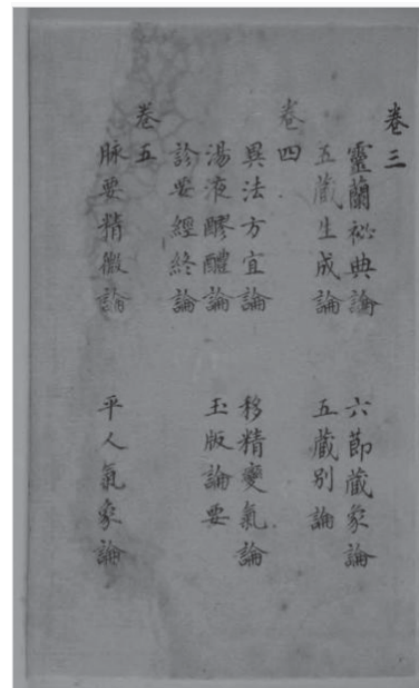 卷三
靈蘭祕典論 六節藏象論
五藏生成論 五藏别論
卷四
異法方宜論 移精變氣論
湯液醪醴論 玉版論要
診要經終論
卷五
脉要精微論 平人氣象論